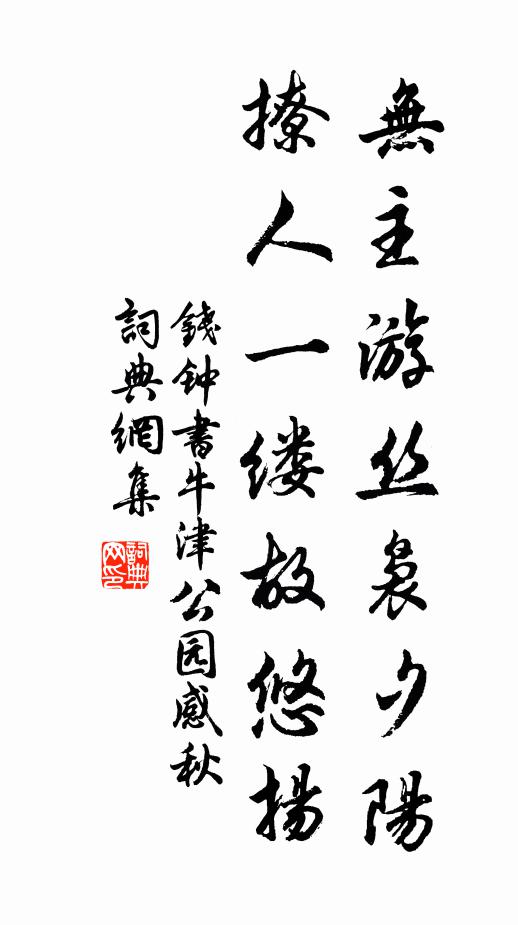 無主游丝袅夕陽
撩人一缕故悠揚
錢钟書牛津公园感秋
詞典網集
詞典网印